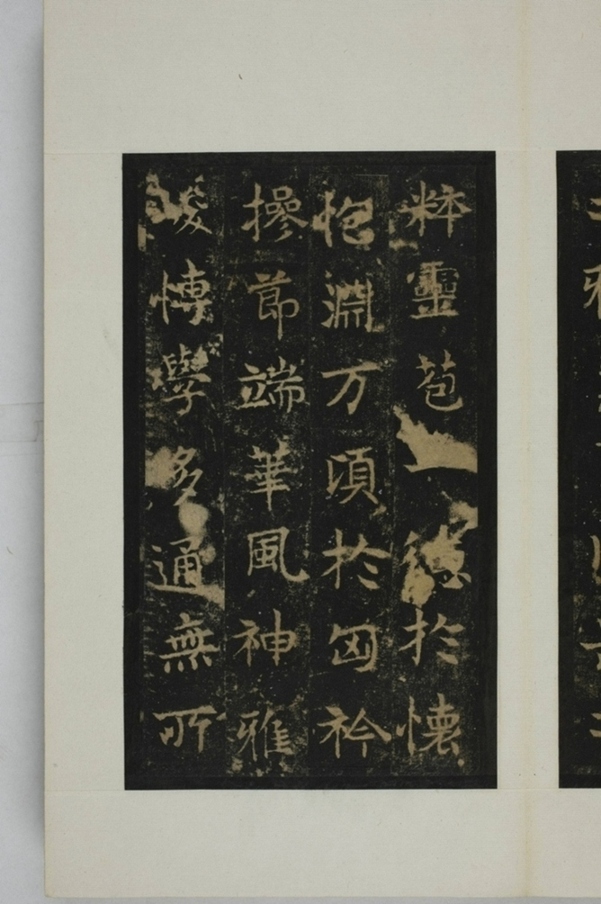 粹靈苞德於懷
抱淵万頃於匈衿
操節端華風神雅
峻博學多通無所